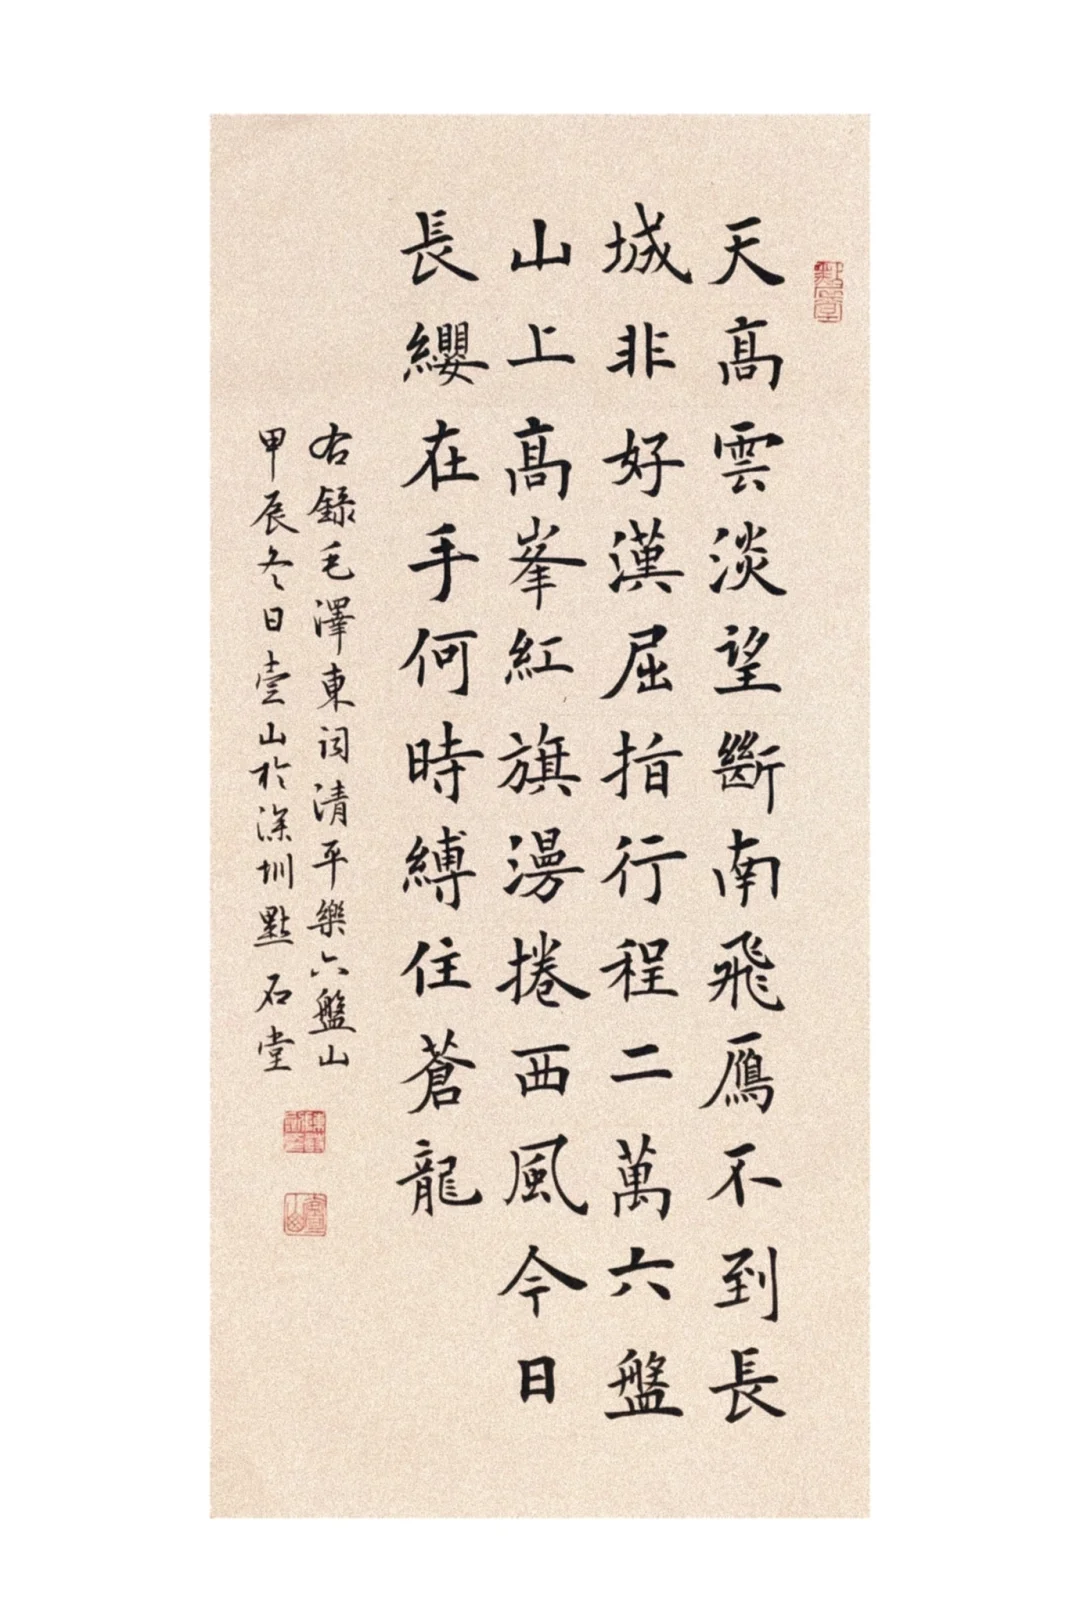 天高雲淡望斷南飛雁不到長
城非好漢屈指行程二萬六盤
山上高峯紅旗漫捲西風今日
長纓在手何時縛住蒼龍
右錄毛澤東词清平樂六盤山
甲辰冬日壹山於深圳點石堂